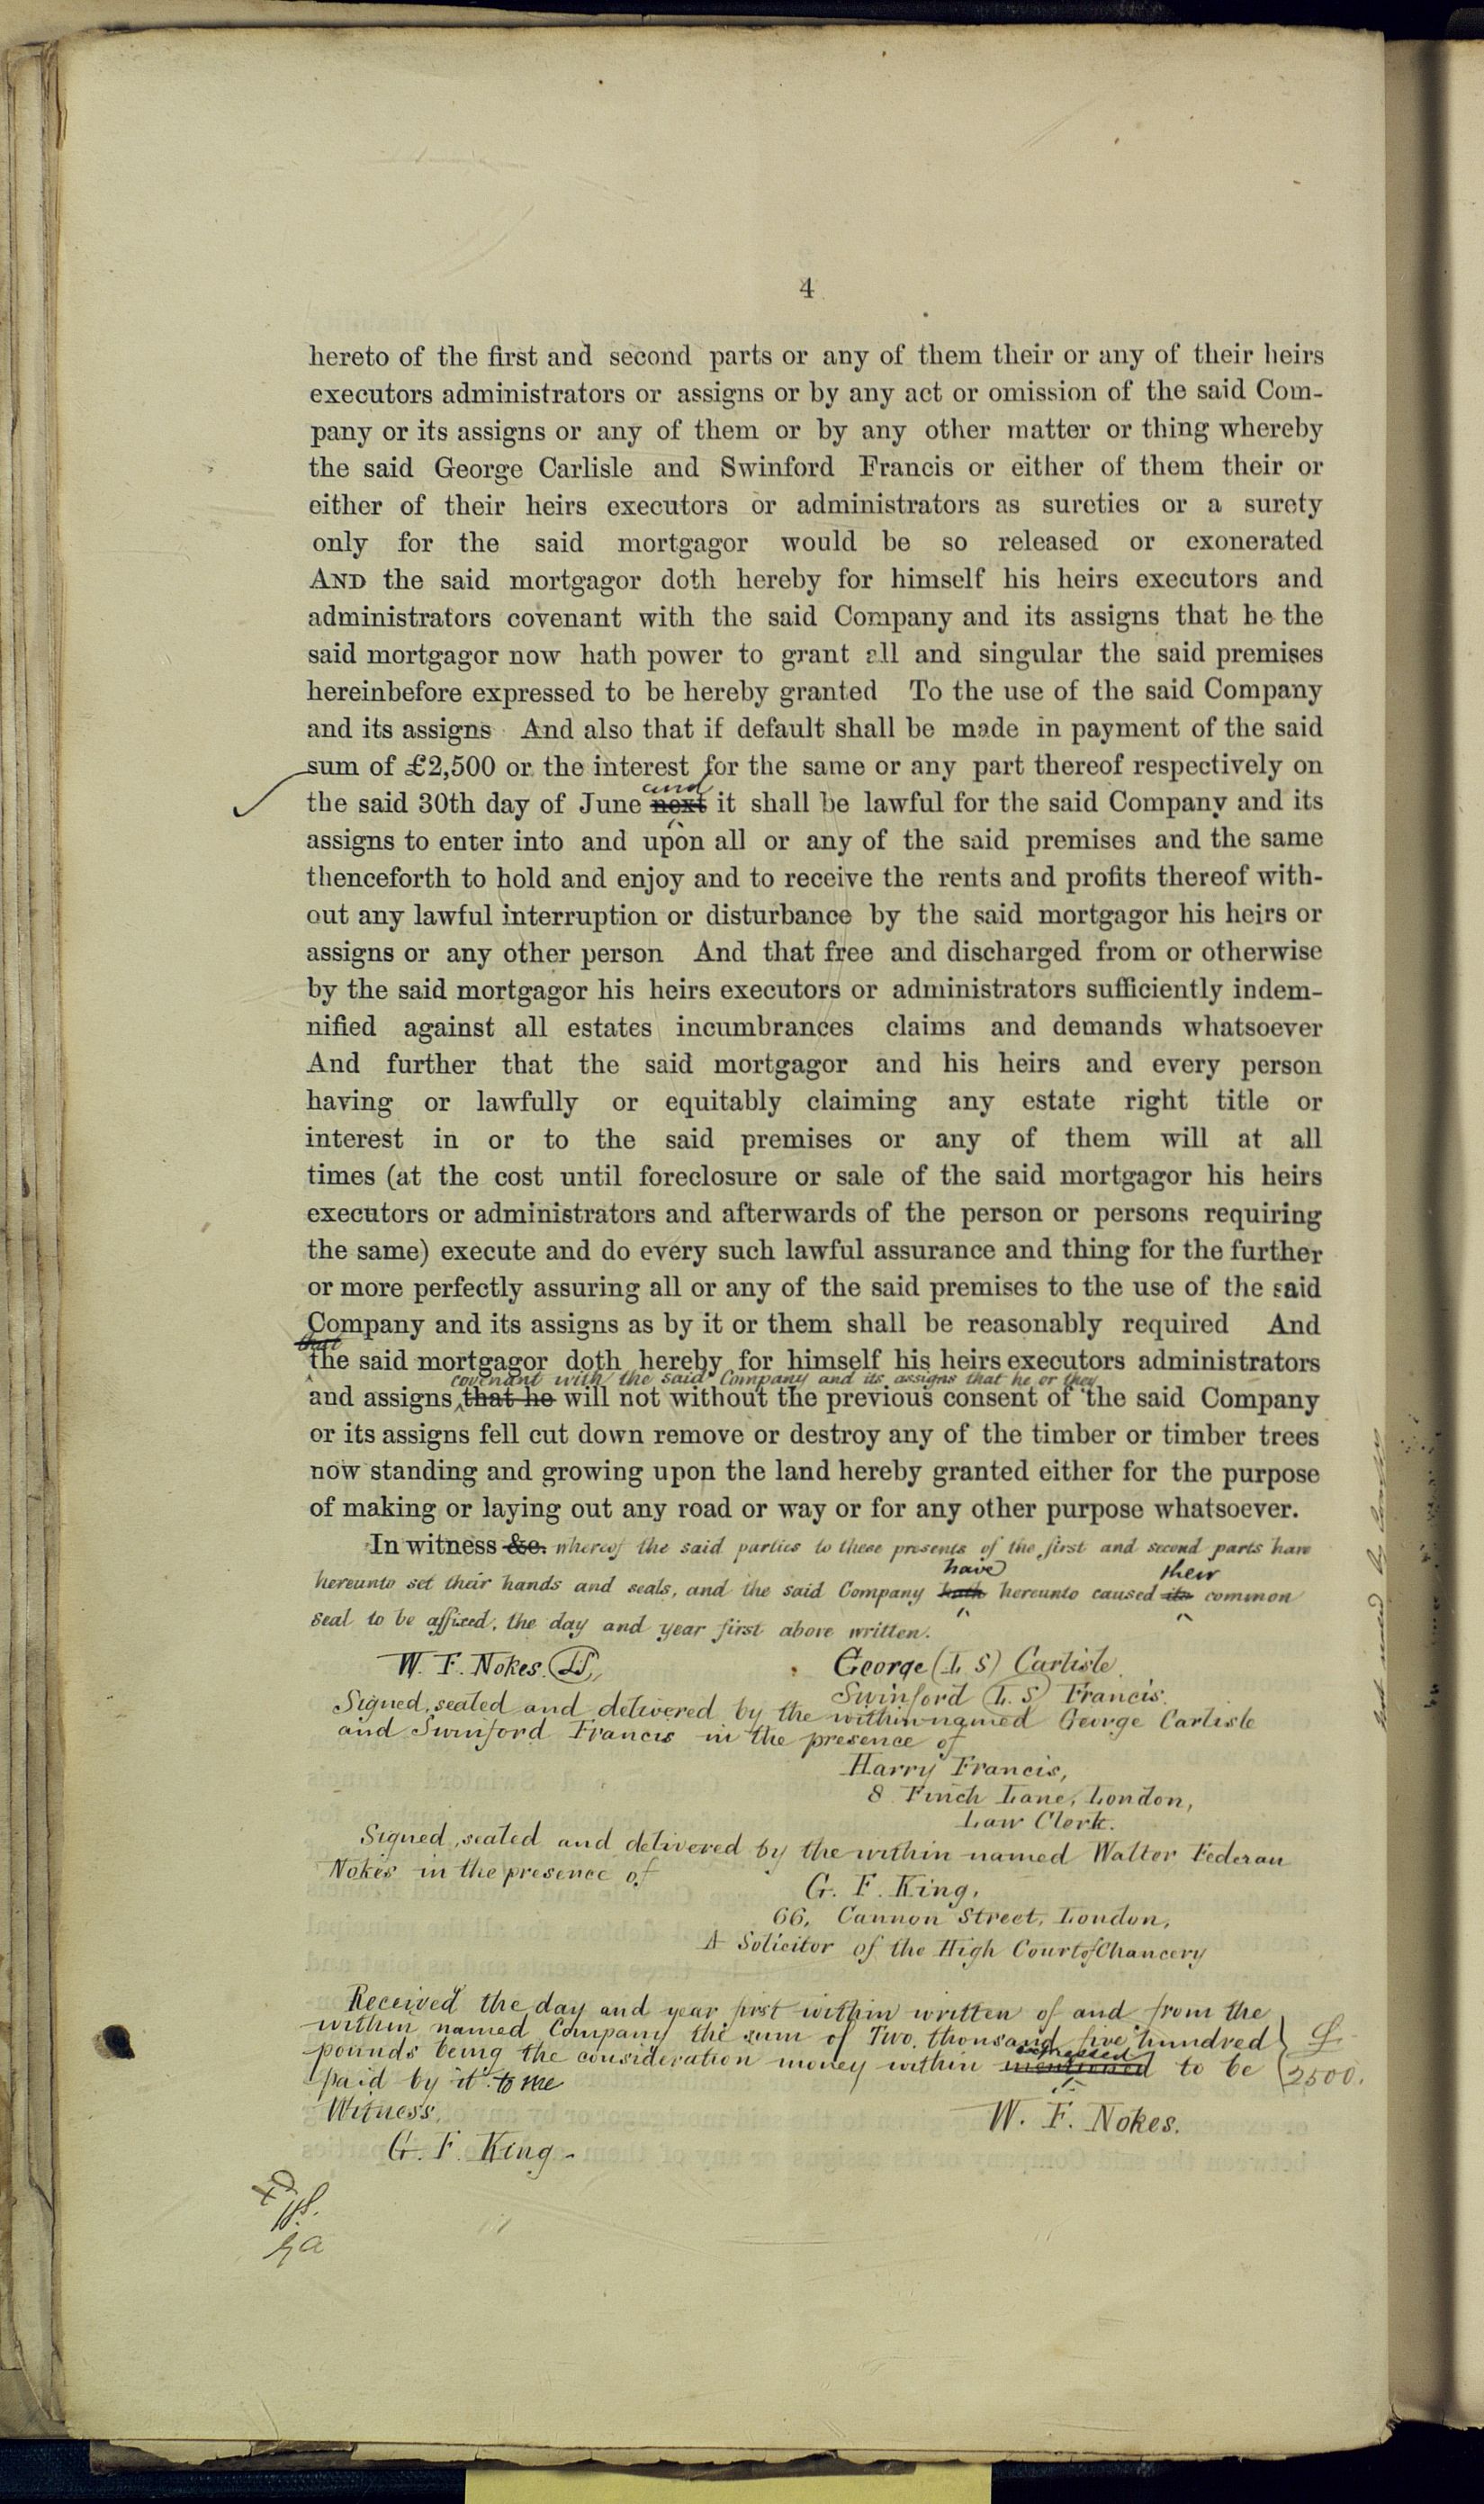 4
hereto of the first and second parts or any of them their or any of their heirs
executors administrators or assigns or by any act or omission of the said Com-
pany or its assigns or any of them or by any other matter or thing whereby
the said George Carlisle and Swinford Francis or either of them their or
either of their heirs executors or administrators as sureties or a surety
only for the said mortgagor would be so released or exonerated
AND the said mortgagor doth hereby for himself his heirs executors and
administrators covenant with the said Company and its assigns that he the
said mortgagor now hath power to grant all and singular the said premises
hereinbefore expressed to be hereby granted To the use of the said Company
and its assigns And also that if default shall be made in payment of the said
sum of £2,500 or the interest for the same or any part thereof respectively on
and
the said 30th day of June next it shall be lawful for the said Company and its
assigns to enter into and upon all or any of the said premises and the same
thenceforth to hold and enjoy and to receive the rents and profits thereof with-
out any lawful interruption or disturbance by the said mortgagor his heirs or
assigns or any other person And that free and discharged from or otherwise
by the said mortgagor his heirs executors or administrators sufficiently indem-
nified against all estates incumbrances claims and demands whatsoever
And further that the said mortgagor and his heirs and every person
having or lawfully or equitably claiming any estate right title or
interest in or to the said premises or any of them will at all
times (at the cost until foreclosure or sale of the said mortgagor his heirs
executors or administrators and afterwards of the person or persons requiring
the same) execute and do every such lawful assurance and thing for the further
or more perfectly assuring all or any of the said premises to the use of the said
Company and its assigns as by it or them shall be reasonably required And
that
the said mortgagor doth hereby for himself his heirs executors administrators
covenant with the said Company and its assigns that he or they
and assigns that he will not without the previous consent of the said Company
or its assigns fell cut down remove or destroy any of the timber or timber trees
now standing and growing upon the land hereby granted either for the purpose
of making or laying out any road or way or for any other purpose whatsoever.
In witness &c. whereof the said parties to these presents of the first and second parts have
have their
hereunto set their hands and seals, and the said Company hath hereunto caused its common
seal to be affixed, the day and year first above written.
W. F. Nokes. LS George (L S) Carlisle
Swinford (L. S) Francis.
Signed, sealed and delivered by the within named George Carlisle
and Swinford Francis in the presence of
Harry Francis,
8 Finch Lane, London,
Law Clerk.
Signed, sealed and delivered by the within named Walter Federan
Nokes in the presence of
G. F. King,
66, Cannon Street, London,
A Solicitor of the High Court of Chancery
Received the day and year first within written of and from the
within named Company the sum of Two thousand five hundred £
expressed
pounds being the consideration money within mentioned to be 2500.
paid by it to me
Witness, W. F. Nokes.
G. F. King